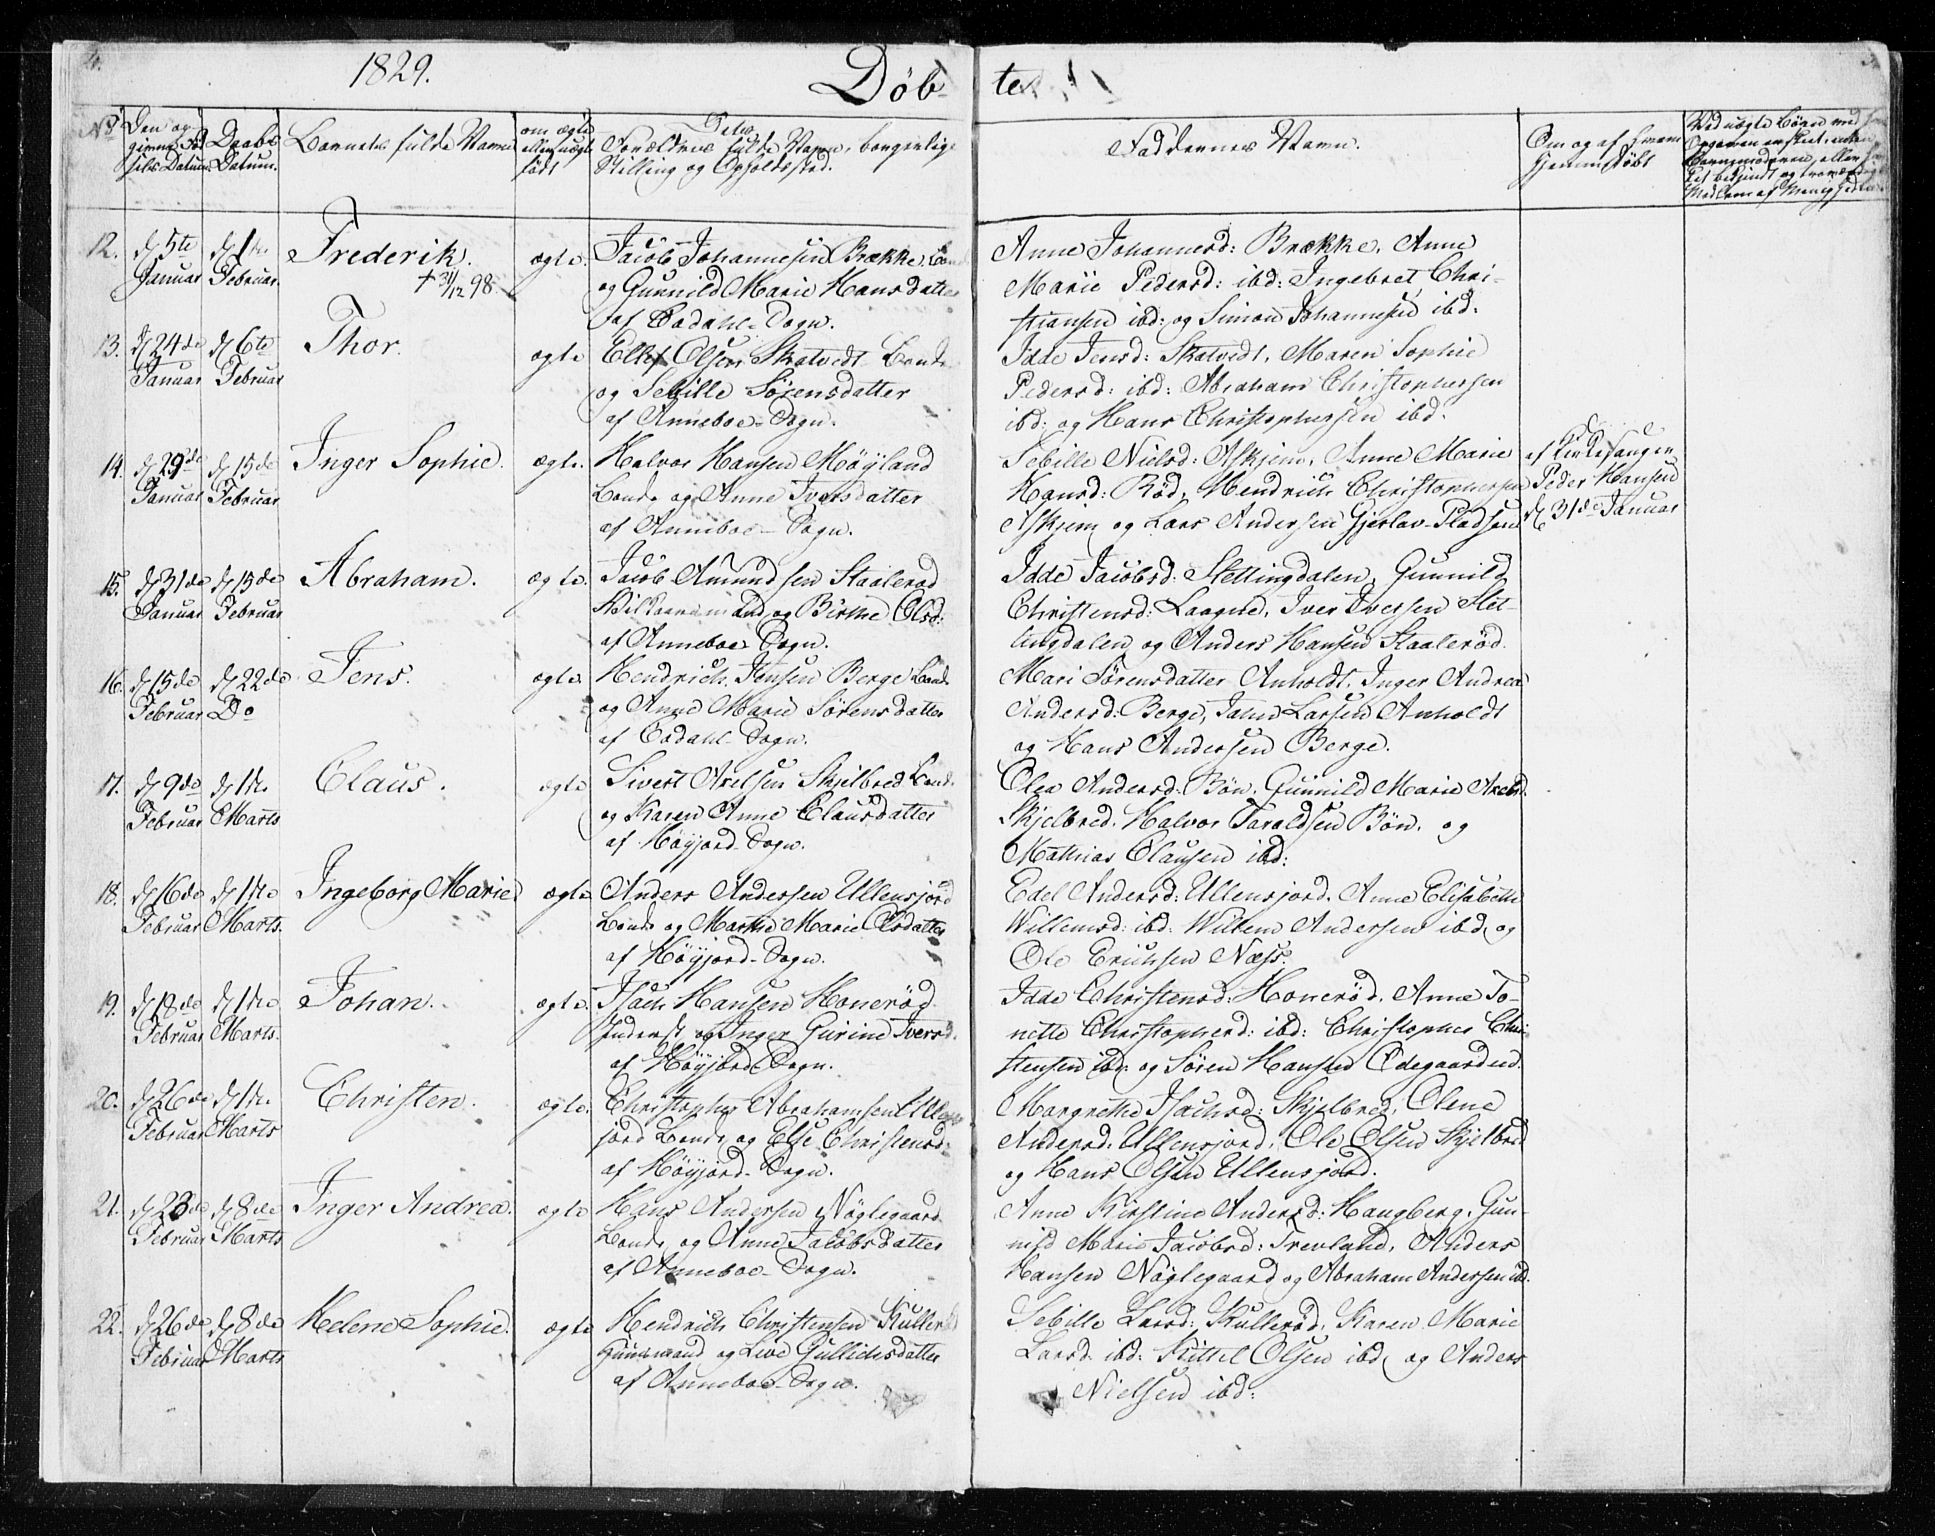 1829.
Døb te
No
Den og givne Fødsels Datum.
Daabs Datum.
Barnets fulde Navn
om ægte eller uægte født
Dets Forældres fulde Navn, borgerlige Stilling og Opholdssted.
Faddernes Navn.
Om og af hvem hjemmedøbt
Ved uægte Børn med
12. d 5te Januar d 1ste Februar Frederik. † 31/12 98. ægte. Jacob Johannesen Brække, Bonde
og Gunnild Marie Hansdatter
af Codahl-Sogn.
Anne Johannesd: Brække, Anne
Marie Pedersd: ibd: Ingebret Chri-
stiansen ibd: og Simon Johannesen ibd.
13. d 24de Januar d 6te Februar Thor. ægte Ellef Olsen Skatvedt Bonde
og Sebille Sørensdatter
af Anneboe-Sogn.
Idde Jensd: Skatvedt, Maren Sophie
Pedersd: ibd: Abraham Christophersen
ibd: og Hans Christophersen ibd.
14. d 29de Januar d 15de Februar Inger Sophie. ægte. Halvor Hansen Møyland
Bonde og Anne Iversdatter
af Anneboe-Sogn.
Sebille Nielsd: Askjem, Anne Marie
Hansd: Rød, Hendrich Christophersen
Askjem og Lars Andersen Gjerlav-Pladsen
af Kirkesanger
Peder Hansen
d 31de Januar
15. d 31de Januar d 15de Februar Abraham. ægte. Jacob Amundsen Staalerød
og Birthe Olsd:
af Anneboe Sogn.
Idde Jacobsd: Slettingdalen, Gunnild
Christensd: Laagne, Iver Iversen Slet-
tingdalen og Anders Hansen Staalerød.
16. d 15de Februar d 22de Do Jens. ægte. Hendrich Jensen Berge Bonde
og Anne Marie Sørensdatter
af Codahl-Sogn.
Mari Sørensdatter Anholdt, Inger Andrea
Andersd: Berge, Larsen Anholdt
og Hans Andersen Berge.
17. d 9de Februar d 1ste Marts Claus. ægte Sivert Axelsen Skjelbred Bonde
og Karen Anne Clausdatter
af Høyjord-Sogn.
Olea Andersd: Bøn, Gunnild Marie Axelsd.
Skjelbred, Halvor Taraldsen Bøn, og
Mathias Clausen ibd:
18. d 16de Februar d 1ste Marts. Ingeborg Marie ægte Anders Andersen Ullensjord
Bonde og Marthe Marie Olsdatter
af Høyjord-Sogn.
Edel Andersd: Ullensjord, Anne Elisabethe
Willemsd: ibd: Willem Andersen ibd, og
Ole Erichsen Næss.
19. d 18de Februar d 1ste Marts. Johan. ægte. Isach Hansen Honerød
Inderst og Inger Gurine Iversd.
af Høyjord Sogn.
Idde Christensd: Honerød, Anne To-
nette Christophersd: ibd: Christopher Chri-
stensen ibd: og Søren Hansen Ødegaarden.
20. d 26de Februar d 1ste Marts Christen. ægte. Christopher Abrahamsen Ullens
jord Bonde og Else Christensd:
af Høyjord-Sogn.
Margrethe Isachsd: Skjelbred, Olene
Andersd. Ullensjord, Ole Olsen Skjelbred
og Hans Olsen Ullensjord.
21. d 23de Februar d 8de Marts Inger Andrea. ægte Hans Andersen Nøglegaard
Bonde og Anne Jacobsdatter
af Anneboe-Sogn.
Anne Kirstine Andersd: Haugberg, Gun-
nild Marie Jacobsd: Trevland, Anders
Hansen Nøglegaard og Abraham Andersen ibd.
22. d 26de Februar d 8de Marts Helene Sophie. ægte Hendrich Christensen Kullerød
Huusmand og Live Gullichsdatter
af Anneboe-Sogn.
Sebille Larsd: Kullerød, Karen Marie
Larsd. ibd: Kittel Olsen ibd, og Anders
Nielsen ibd: